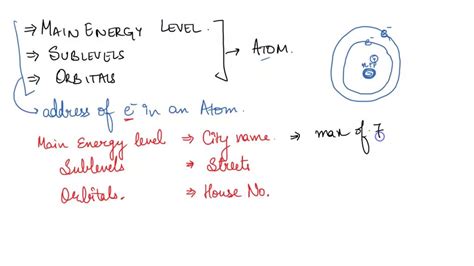 ⇒ MAIN ENERGY LEVEL.
⇒ SUBLEVELS → ATOM.
⇒ ORBITALS
→ address of e⁻ in an Atom.
Main Energy level ⇒ City name. ⇒ max of 7
Sublevels → Streets
Orbitals. ⇒ House No.
e⁻
e⁻